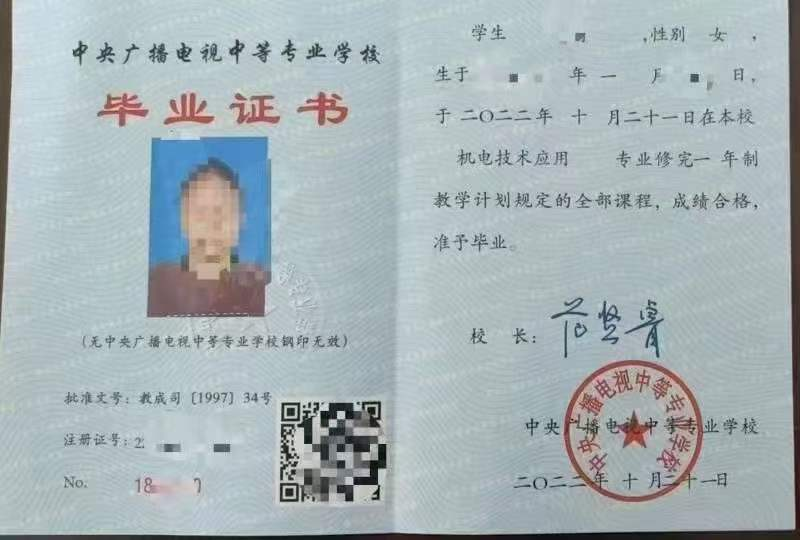 中央广播电视中等专业学校
毕业证书
(无中央广播电视中等专业学校钢印无效)
批准文号：教成司［1997］34号
注册证号：2
No. 18 0
学生 ,性别 女 ,
生于 年 一 月 日,
于 二〇二二年 十 月二十一日在本校
机电技术应用 专业修完一 年制
教学计划规定的全部课程，成绩合格，
准予毕业。
校 长：
中央广播电视中等专业学校
中央广播电视中等专业学校
二〇二二年 十 月二十一日